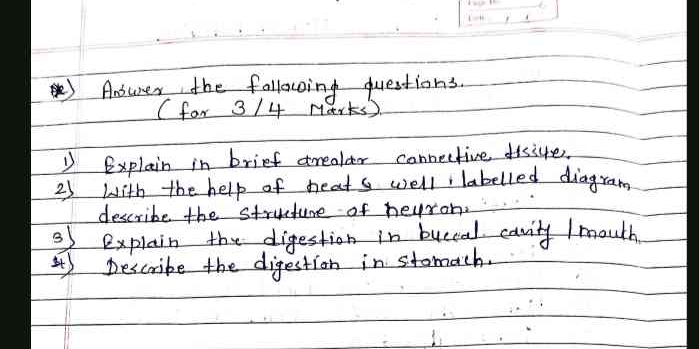 Answer the following questions.
(for 3/4 Marks)
1) Explain in brief areolar connective tissue.
2) With the help of neat & well labelled diagram
describe the structure of neuron.
3) Explain the digestion in buccal cavity / mouth.
4) Describe the digestion in stomach.